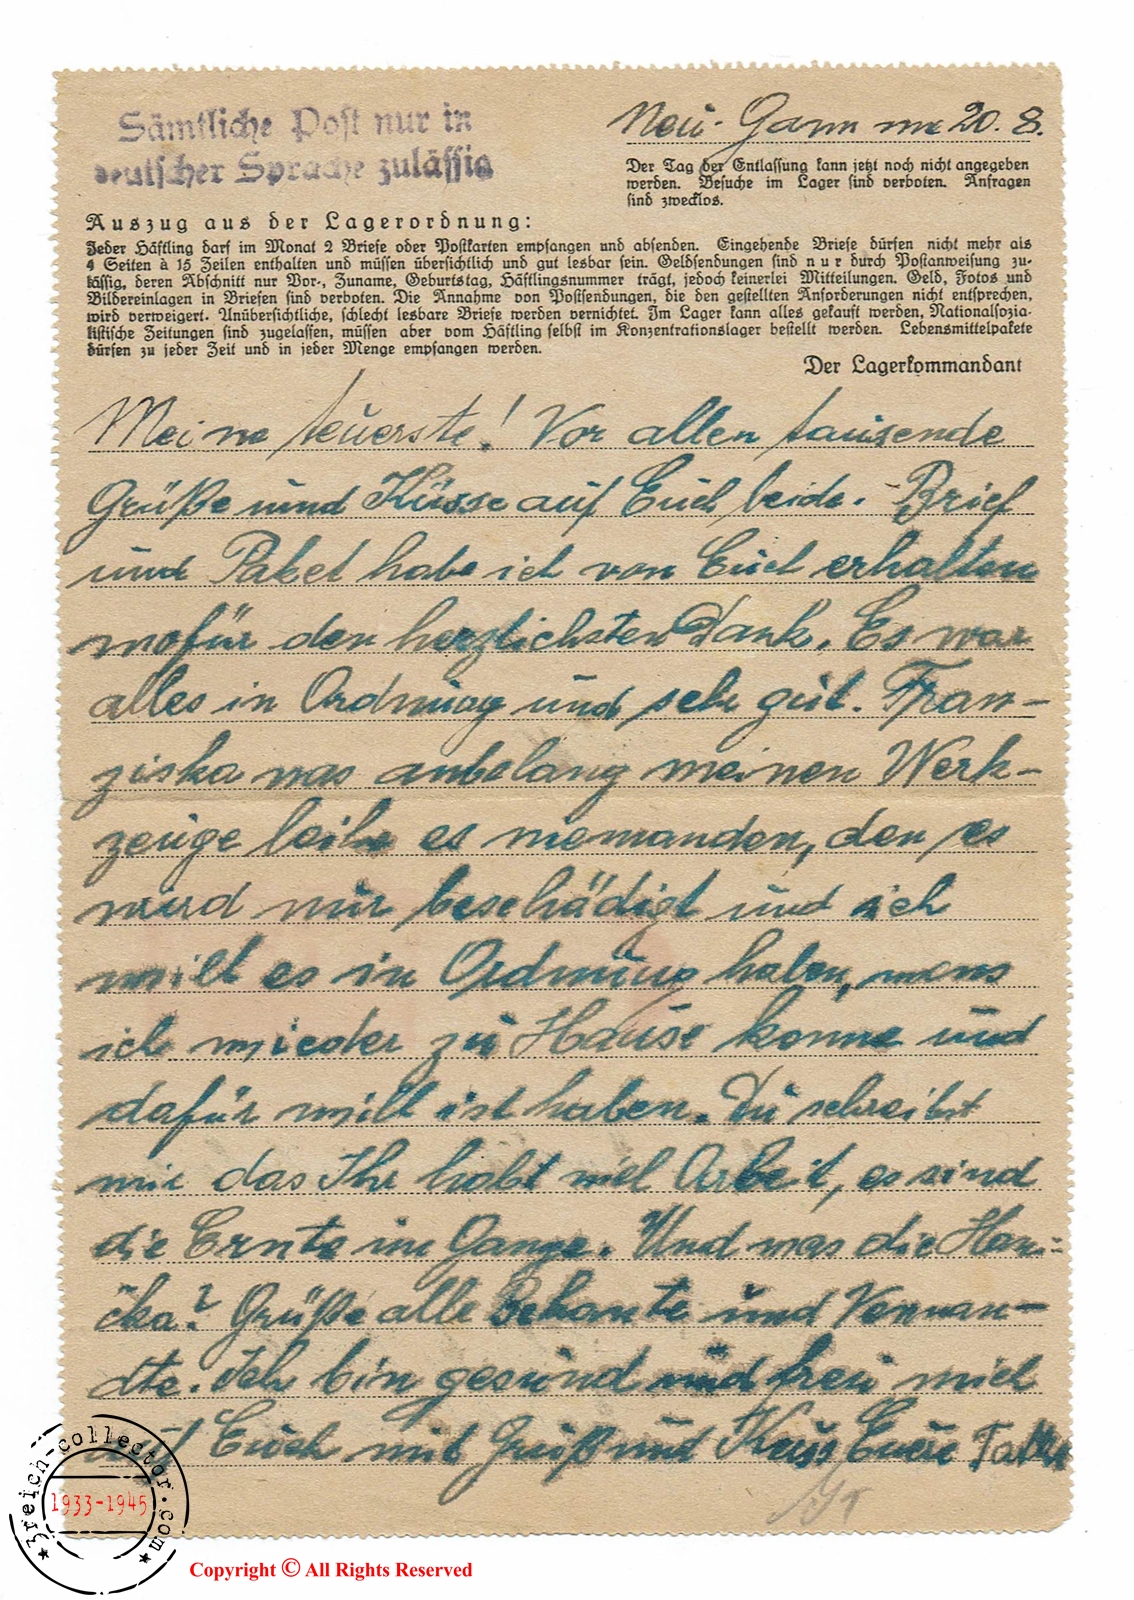 Sämtliche Post nur in
deutscher Sprache zulässig
Neu-Gamme 20. 8.
Der Tag der Entlassung kann jetzt noch nicht angegeben
werden. Besuche im Lager sind verboten. Anfragen
sind zwecklos.
Auszug aus der Lagerordnung:
Jeder Häftling darf im Monat 2 Briefe oder Postkarten empfangen und absenden. Eingehende Briefe dürfen nicht mehr als
4 Seiten à 15 Zeilen enthalten und müssen übersichtlich und gut lesbar sein. Geldsendungen sind nur durch Postanweisung zu-
lässig, deren Abschnitt nur Vor-, Zuname, Geburtstag, Häftlingsnummer trägt, jedoch keinerlei Mitteilungen. Geld, Fotos und
Bildereinlagen in Briefen sind verboten. Die Annahme von Postsendungen, die den gestellten Anforderungen nicht entsprechen,
wird verweigert. Unübersichtliche, schlecht lesbare Briefe werden vernichtet. Im Lager kann alles gekauft werden, Nationalsozia-
listische Zeitungen sind zugelassen, müssen aber vom Häftling selbst im Konzentrationslager bestellt werden. Lebensmittelpakete
dürfen zu jeder Zeit und in jeder Menge empfangen werden.
Der Lagerkommandant
Meine teuerste! Vor allen tausende
Grüße und Küsse auf Euch beide. - Brief
und Paket habe ich von Euch erhalten
wofür den herzlichsten Dank. Es war
alles in Ordnung und sehr gut. Fran-
ziska was anbelang meinen Werk-
zeuge leihe es niemanden, den es
wird nur beschädigt und ich
will es in Ordnung haben, wens
ich wieder zu Hause komme und
dafür will ist haben. Du schreibst
mir das Ihr habt viel Arbeit, es sind
die Ernte im Gange. Und was die Han-
čka? Grüße alle Bekante und Verwan-
dte. Ich bin gesund und freu mich
auf Euch mit Gruß und Kuss Euere
3reich-collector.com
1933-1945
Copyright © All Rights Reserved